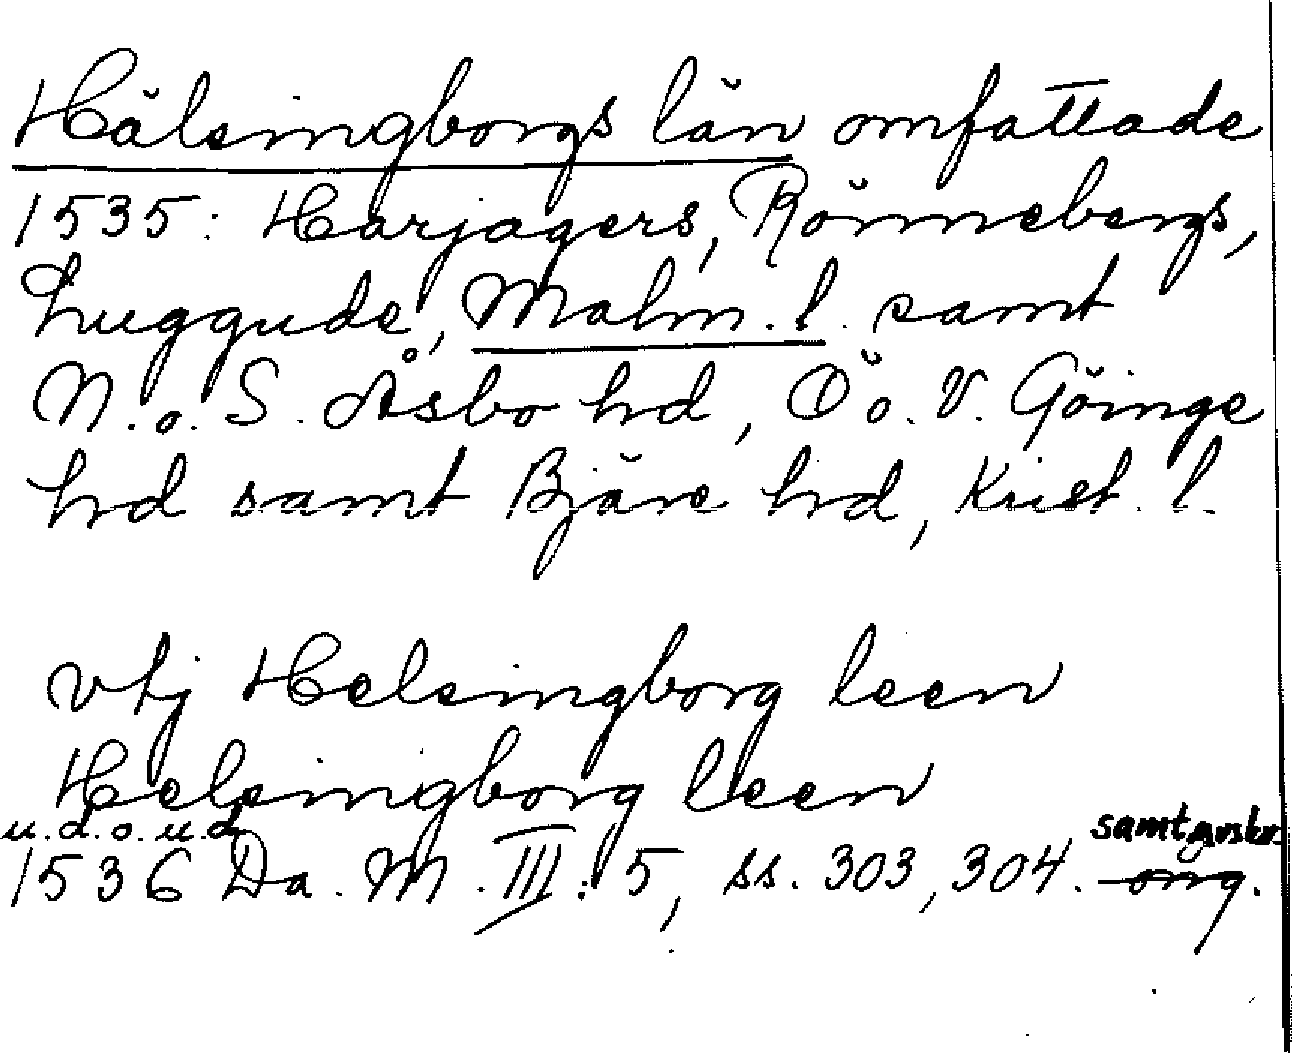 Hälsingborgs län omfattade
1535: Harjagers, Rönnebergs,
Luggude, Malm. l. samt
N. o. S. Åsbo hd, Ö o. V. Göinge
hd samt Bjäre hd, Krist. l.
vtj Helsingborg leen
Helsingborg leen
u.d.o.u.d.
samt avskr.
1536 Da. M. III: 5, ss. 303, 304. orig.